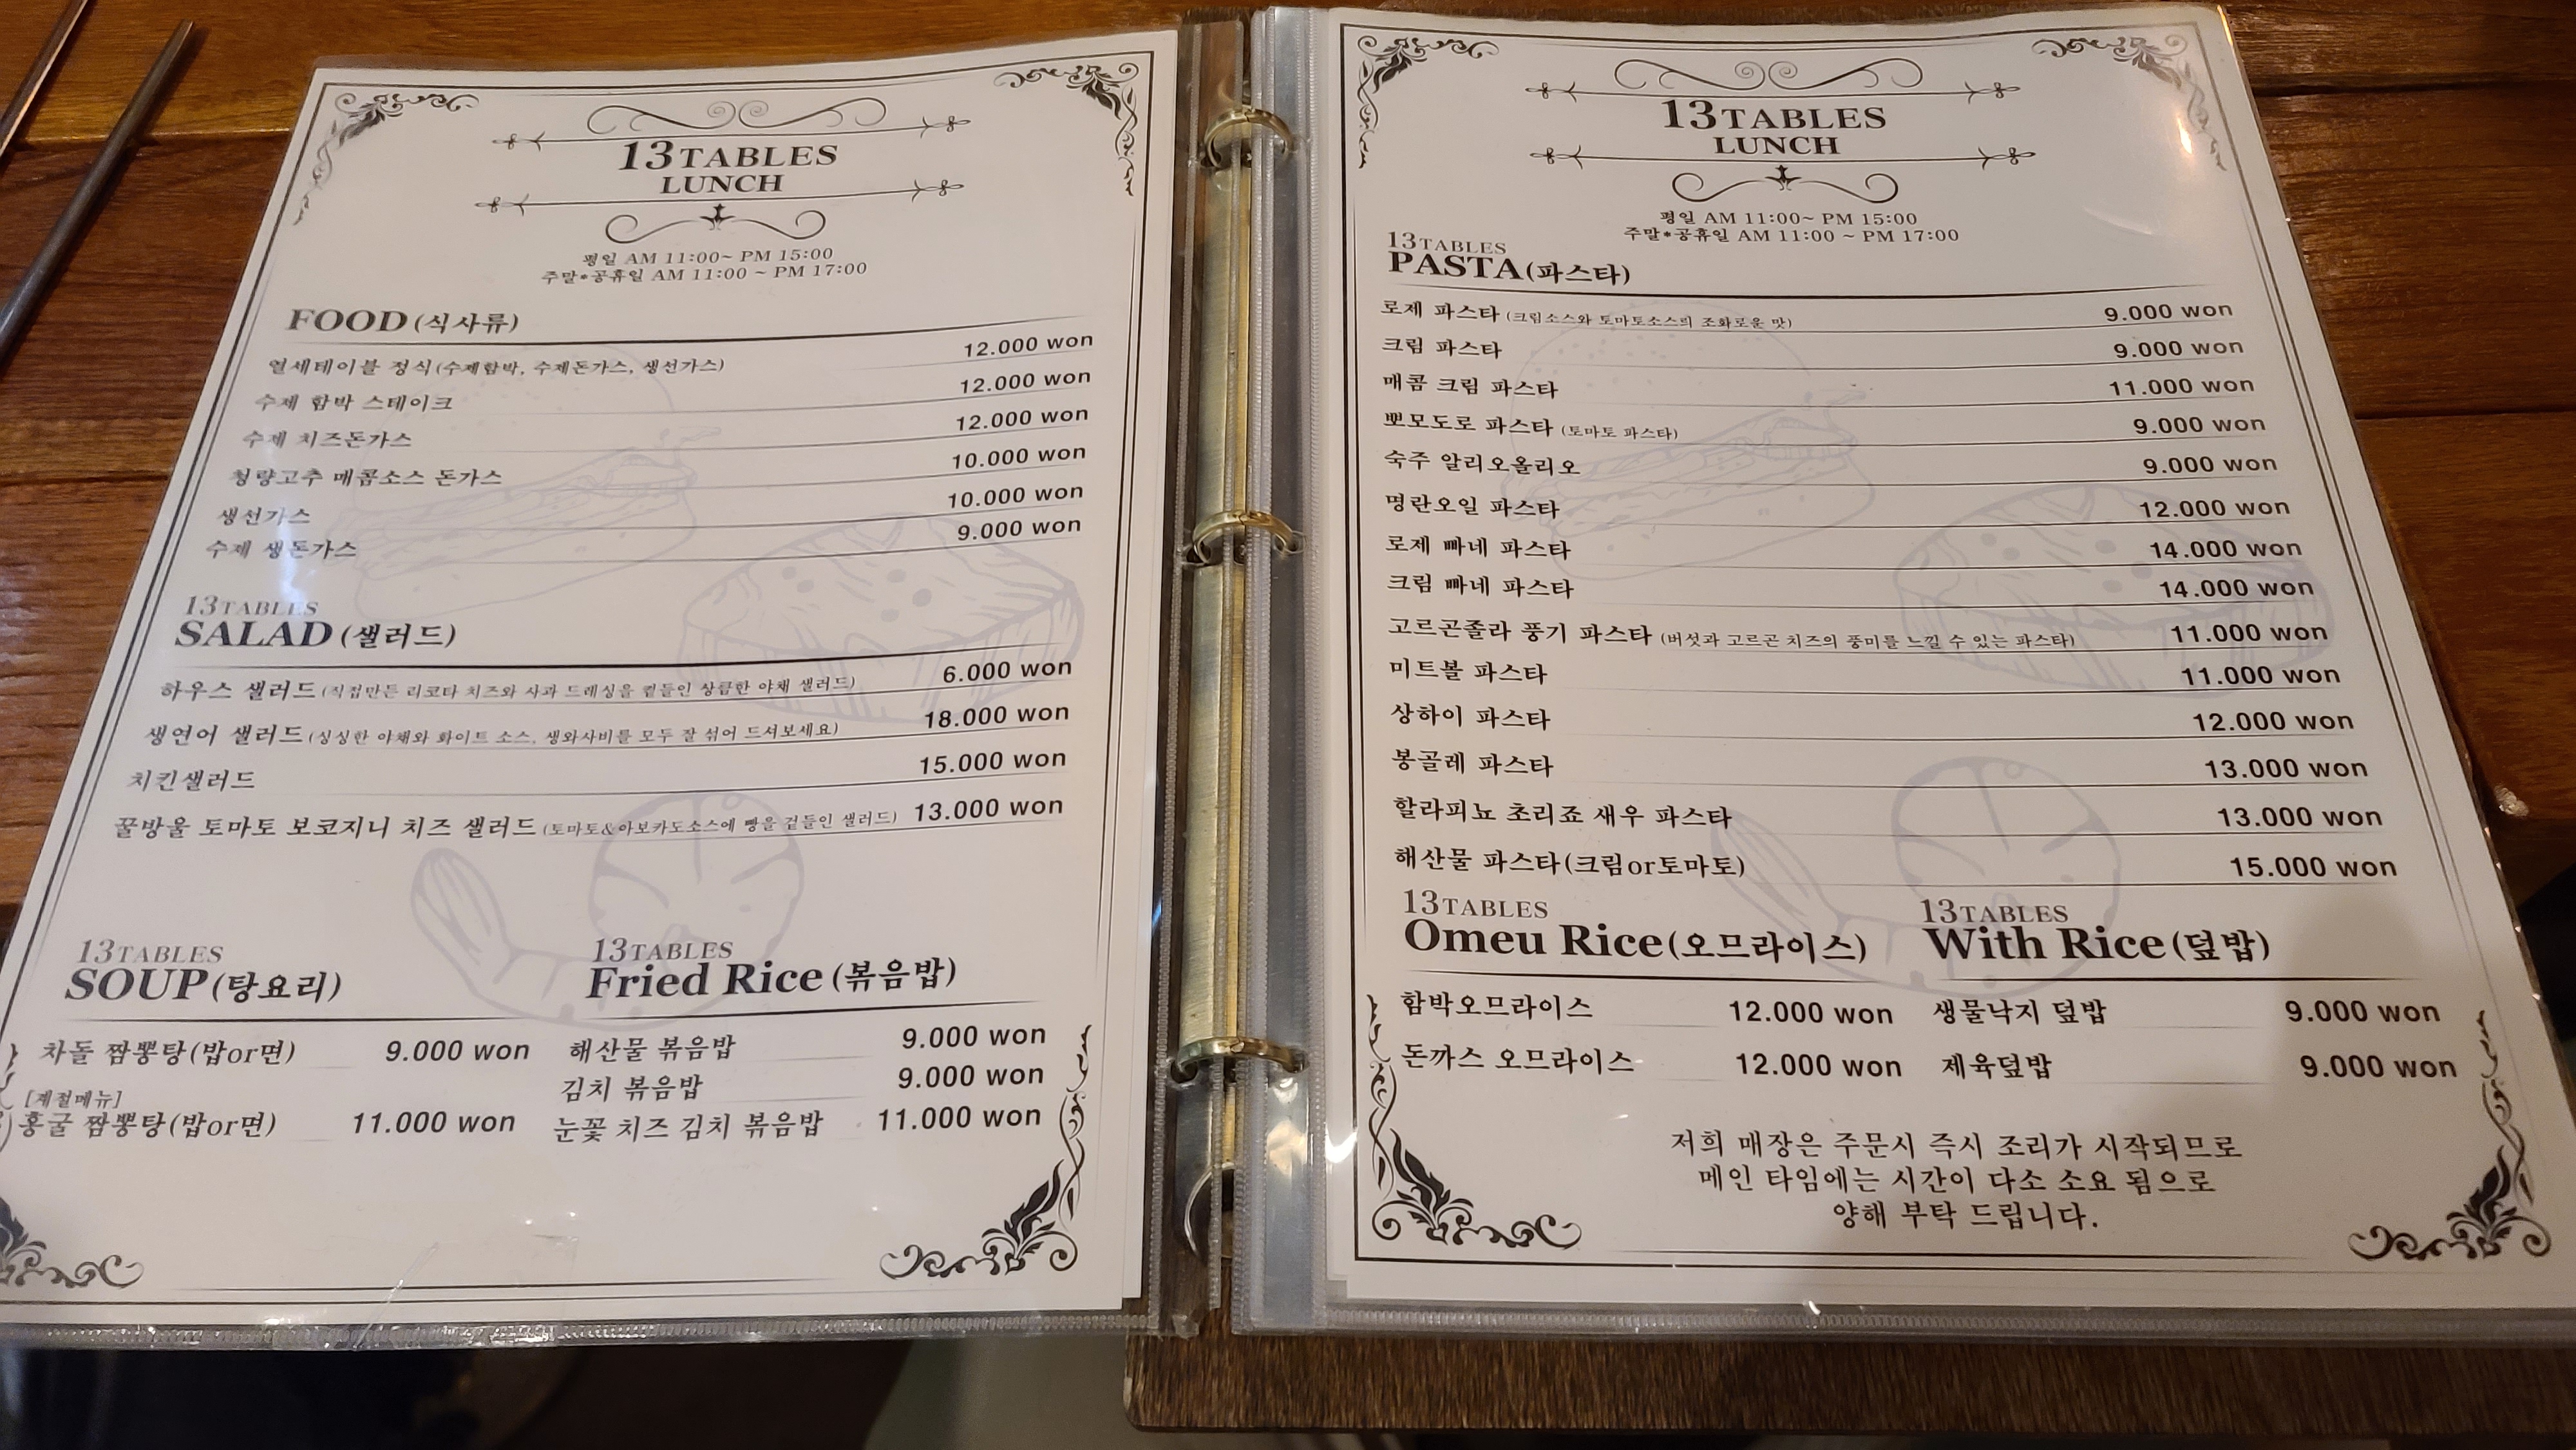 13TABLES
LUNCH
평일 AM 11:00~ PM 15:00
주말*공휴일 AM 11:00 ~ PM 17:00
FOOD (식사류)
열세테이블 정식(수제함박, 수제돈가스, 생선가스) 12.000 won
수제 함박 스테이크 12.000 won
수제 치즈돈가스 12.000 won
청량고추 매콤소스 돈가스 10.000 won
생선가스 10.000 won
수제 생돈가스 9.000 won
13TABLES
SALAD (샐러드)
하우스 샐러드 (직접만든 리코타 치즈와 사과 드레싱을 곁들인 상큼한 야채 샐러드) 6.000 won
생연어 샐러드 (싱싱한 야채와 화이트 소스, 생와사비를 모두 잘 섞어 드셔보세요) 18.000 won
치킨샐러드 15.000 won
꿀방울 토마토 보코지니 치즈 샐러드 (토마토&아보카도소스에 빵을 곁들인 샐러드) 13.000 won
13TABLES
SOUP (탕요리)
차돌 짬뽕탕(밥or면) 9.000 won
[계절메뉴]
홍굴 짬뽕탕(밥or면) 11.000 won
13TABLES
Fried Rice (볶음밥)
해산물 볶음밥 9.000 won
김치 볶음밥 9.000 won
눈꽃 치즈 김치 볶음밥 11.000 won
13TABLES
LUNCH
평일 AM 11:00~ PM 15:00
주말*공휴일 AM 11:00 ~ PM 17:00
13TABLES
PASTA (파스타)
로제 파스타 (크림소스와 토마토소스의 조화로운 맛) 9.000 won
크림 파스타 9.000 won
매콤 크림 파스타 11.000 won
뽀모도로 파스타 (토마토 파스타) 9.000 won
숙주 알리오올리오 9.000 won
명란오일 파스타 12.000 won
로제 빠네 파스타 14.000 won
크림 빠네 파스타 14.000 won
고르곤졸라 풍기 파스타 (버섯과 고르곤 치즈의 풍미를 느낄 수 있는 파스타) 11.000 won
미트볼 파스타 11.000 won
상하이 파스타 12.000 won
봉골레 파스타 13.000 won
할라피뇨 초리죠 새우 파스타 13.000 won
해산물 파스타(크림or토마토) 15.000 won
13TABLES
Omeu Rice (오므라이스)
함박오므라이스 12.000 won
돈까스 오므라이스 12.000 won
13TABLES
With Rice (덮밥)
생물낙지 덮밥 9.000 won
제육덮밥 9.000 won
저희 매장은 주문시 즉시 조리가 시작되므로
메인 타임에는 시간이 다소 소요 됨으로
양해 부탁 드립니다.